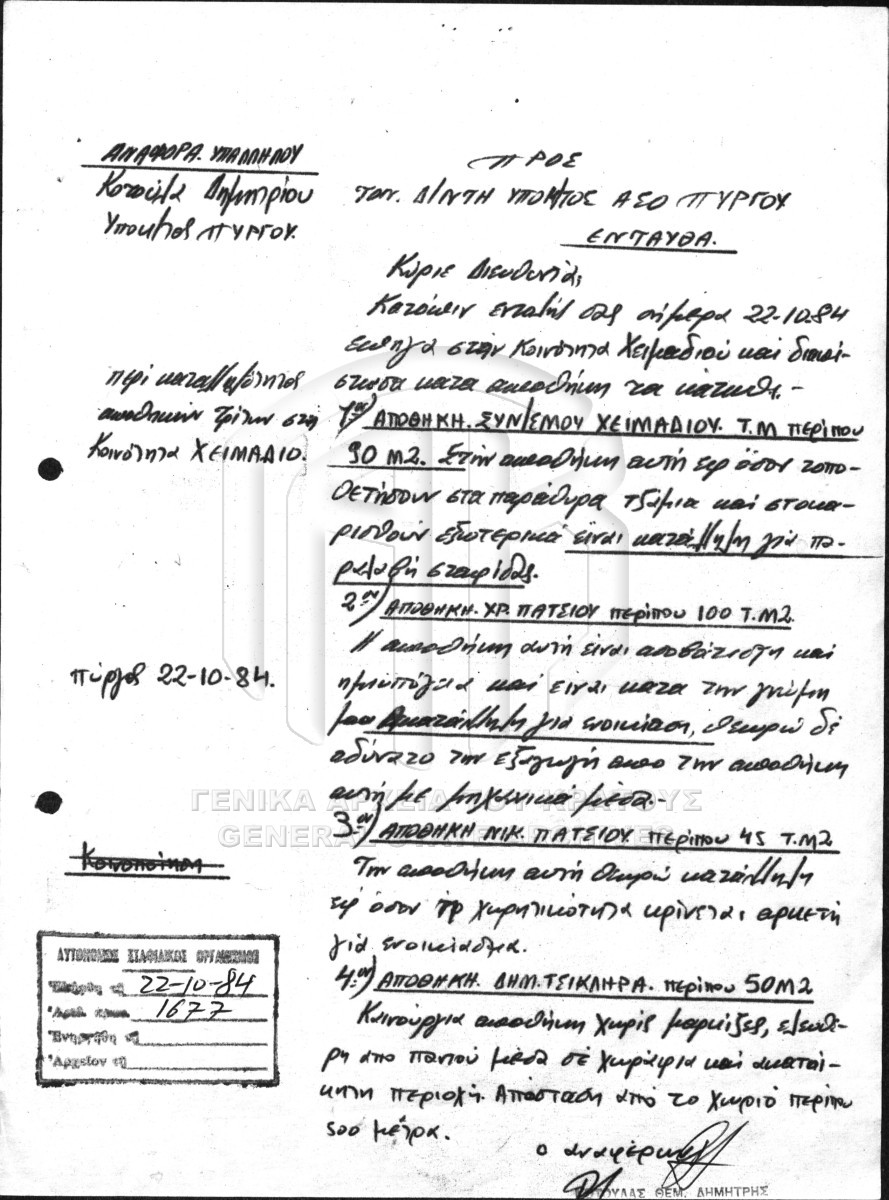 ΑΝΑΦΟΡΑ. ΥΠΑΛΛΗΛΟΥ
Δημητρίου
ΠΥΡΓΟΥ.
ΠΡΟΣ
ΤΟΝ. Δ/ΝΤΗ ΥΠΟΚ/ΤΟΣ ΑΣΟ ΠΥΡΓΟΥ
ΕΝΤΑΥΘΑ.
περί καταλληλότητος
αποθηκών τρίτων στη
Κοινότητα ΧΕΙΜΑΔΙΟ.
Πύργος 22-10-84.
Κοινοποίηση
Κύριε Διευθυντά,
Κατόπιν εντολής σας σήμερα 22-10-84
επήγα στην Κοινότητα Χειμαδιού και διαπί-
στωσα κατα αποθήκη τα κάτωθι.-
1ον) ΑΠΟΘΗΚΗ. ΣΥΝ/ΣΜΟΥ ΧΕΙΜΑΔΙΟΥ. Τ.Μ περίπου
90 Μ2. Στην αποθήκη αυτή εφ όσον τοπο-
θετήσουν στα παράθυρα τζάμια και στοκα-
ρισθούν εξωτερικά είναι κατάλληλη για πα-
ραλαβή σταφίδας.
2ον) ΑΠΟΘΗΚΗ. ΧΡ. ΠΑΤΣΙΟΥ περίπου 100 Τ.Μ2.
Η αποθήκη αυτή είναι ασοβάτιστη και
ημιυπόγεια και είναι κατα την γνώμη
μου Ακατάλληλη για ενοικίαση, θεωρώ δέ
αδύνατο την εξαγωγή απο την αποθήκη
αυτή με μηχανικά μέσα.-
3ον) ΑΠΟΘΗΚΗ ΝΙΚ. ΠΑΤΣΙΟΥ. περίπου 45 Τ.Μ2
Την αποθήκη αυτή θεωρώ κατάλληλη
εφ όσον χωρητικότητα κρίνεται αρκετή
γιά ενοικίασμα.
4ον) ΑΠΟΘΗΚΗ. ΔΗΜ. ΤΣΙΚΛΗΡΑ. περίπου 50 Μ2
Καινούργια αποθήκη χωρίς μαρκίζες, ελευθέ-
ρη απο παντού μέσα σέ χωράφια και ακατοί-
κητη περιοχή. Απόσταση από το χωριό περίπου
500 μέτρα.
ο αναφέρων
ΘΕΜ. ΔΗΜΗΤΡΗΣ
ΑΥΤΟΝΟΜΟΣ ΣΤΑΦΙΔΙΚΟΣ ΟΡΓΑΝΙΣΜΟΣ
Ἐλήφθη τῇ 22-10-84
Ἀριθ. πρωτ. 1677
Ἐνηργήθη τῇ
Ἀρχεῖον τῇ
ΓΕΝΙΚΑ ΑΡΧΕΙΑ ΤΟΥ ΚΡΑΤΟΥΣ
GENERAL STATE ARCHIVES